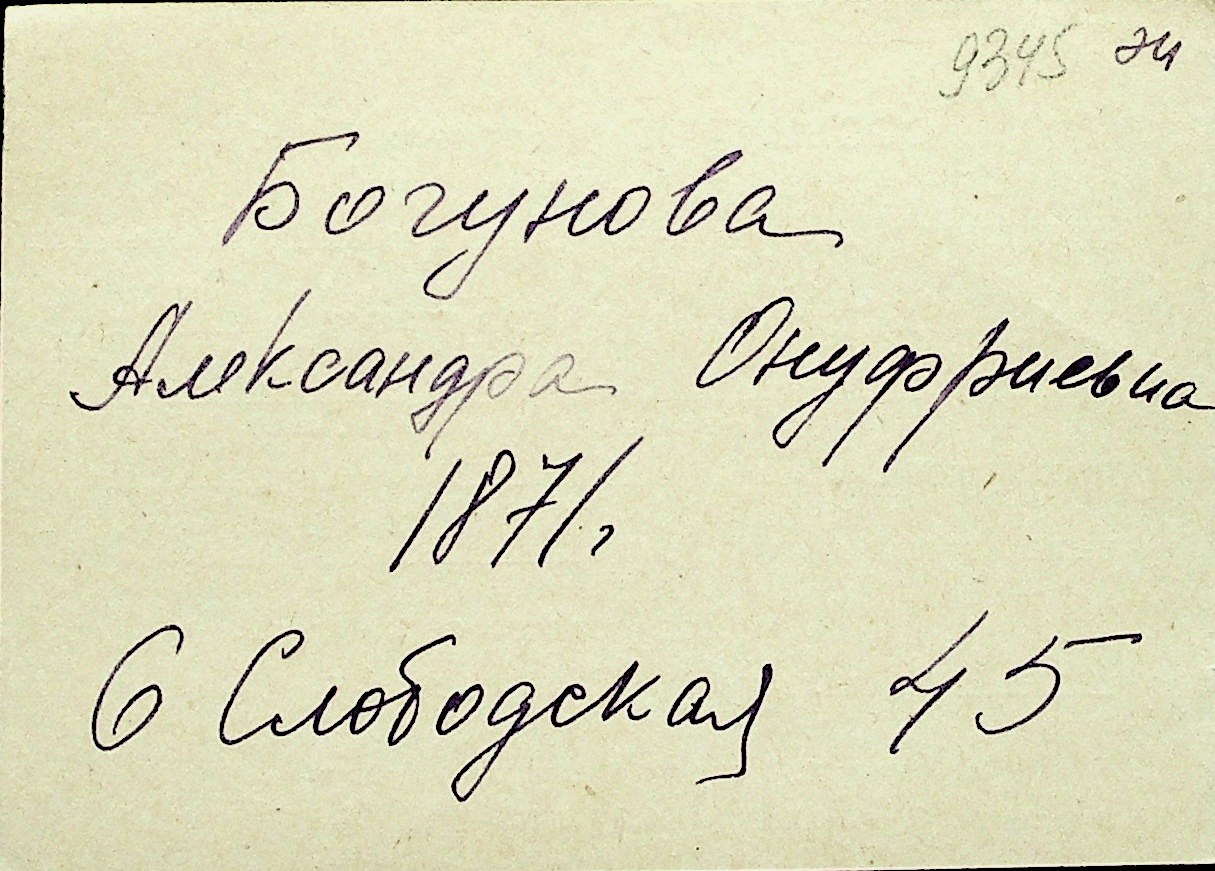 9345 эч
Богунова
Александра Онуфриевна
1871г
6 Слободская 45